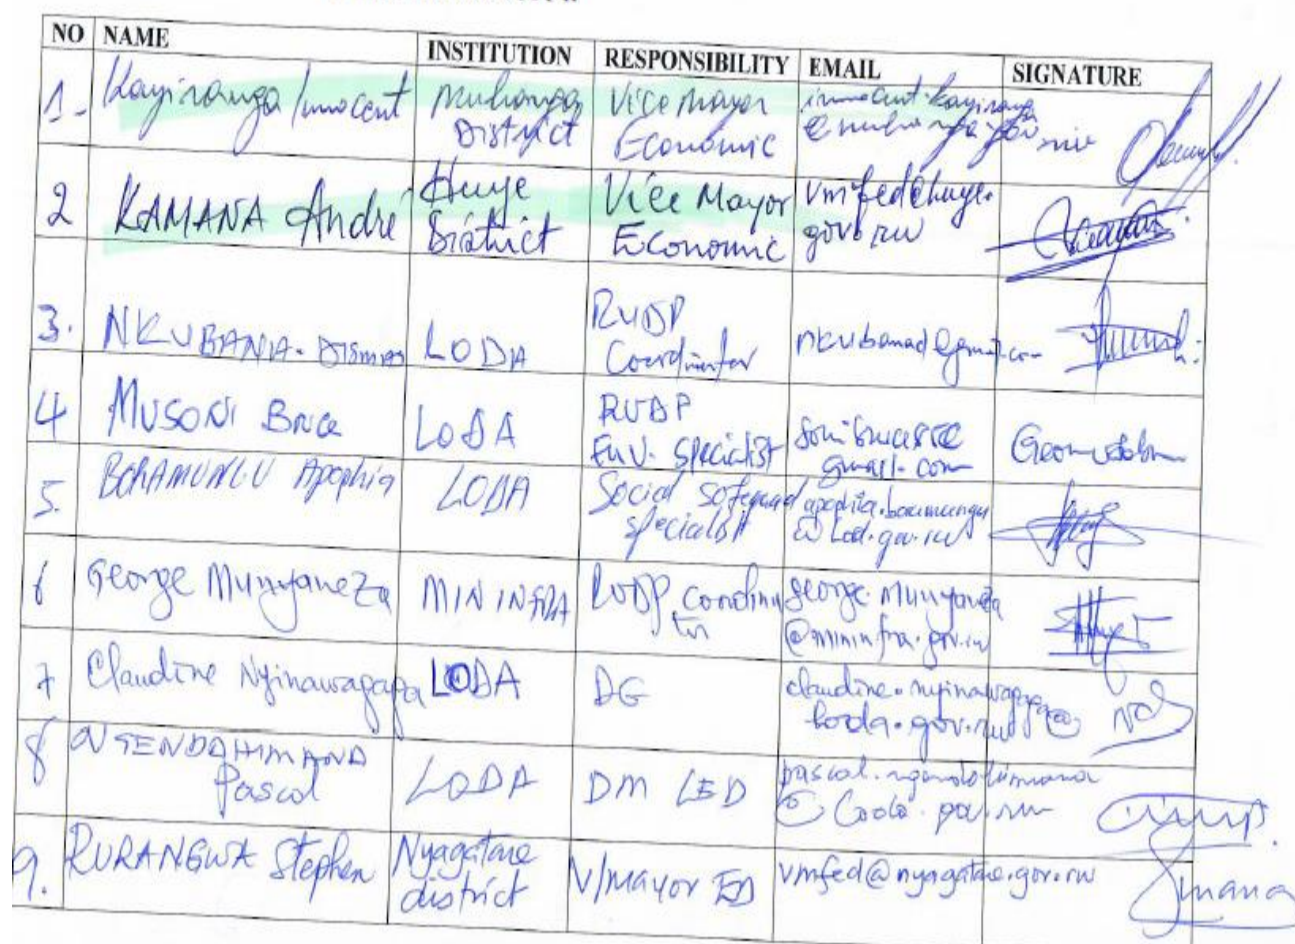 NO NAME INSTITUTION RESPONSIBILITY EMAIL SIGNATURE
1- Kayiranga Innocent Muhanga District Vice Mayor Economic innocent.kayiranga
2 KAMANA André Huye District Vice Mayor Economic vmfed@huye.gov.rw
3. NKUBANA Dismas LODA RUDP Coordinator nkubanad@gmail.com
4 MUSONI Bruce LODA RUDP Env. Specialist gmail.com
5. Apophia LODA Social Safeguard specialist @ Lod.gov.rw
6 George Munyaneza MININFRA RUDP george.munyaneza @mininfra.gov.rw
7 Claudine Nyinawagaga LODA DG claudine.nyinawagaga@ loda.gov.rw
8 NSENDAHIMANA Pascal LODA DM LED
9. RURANGWA Stephen Nyagatare district V/mayor ED vmfed@nyagatare.gov.rw